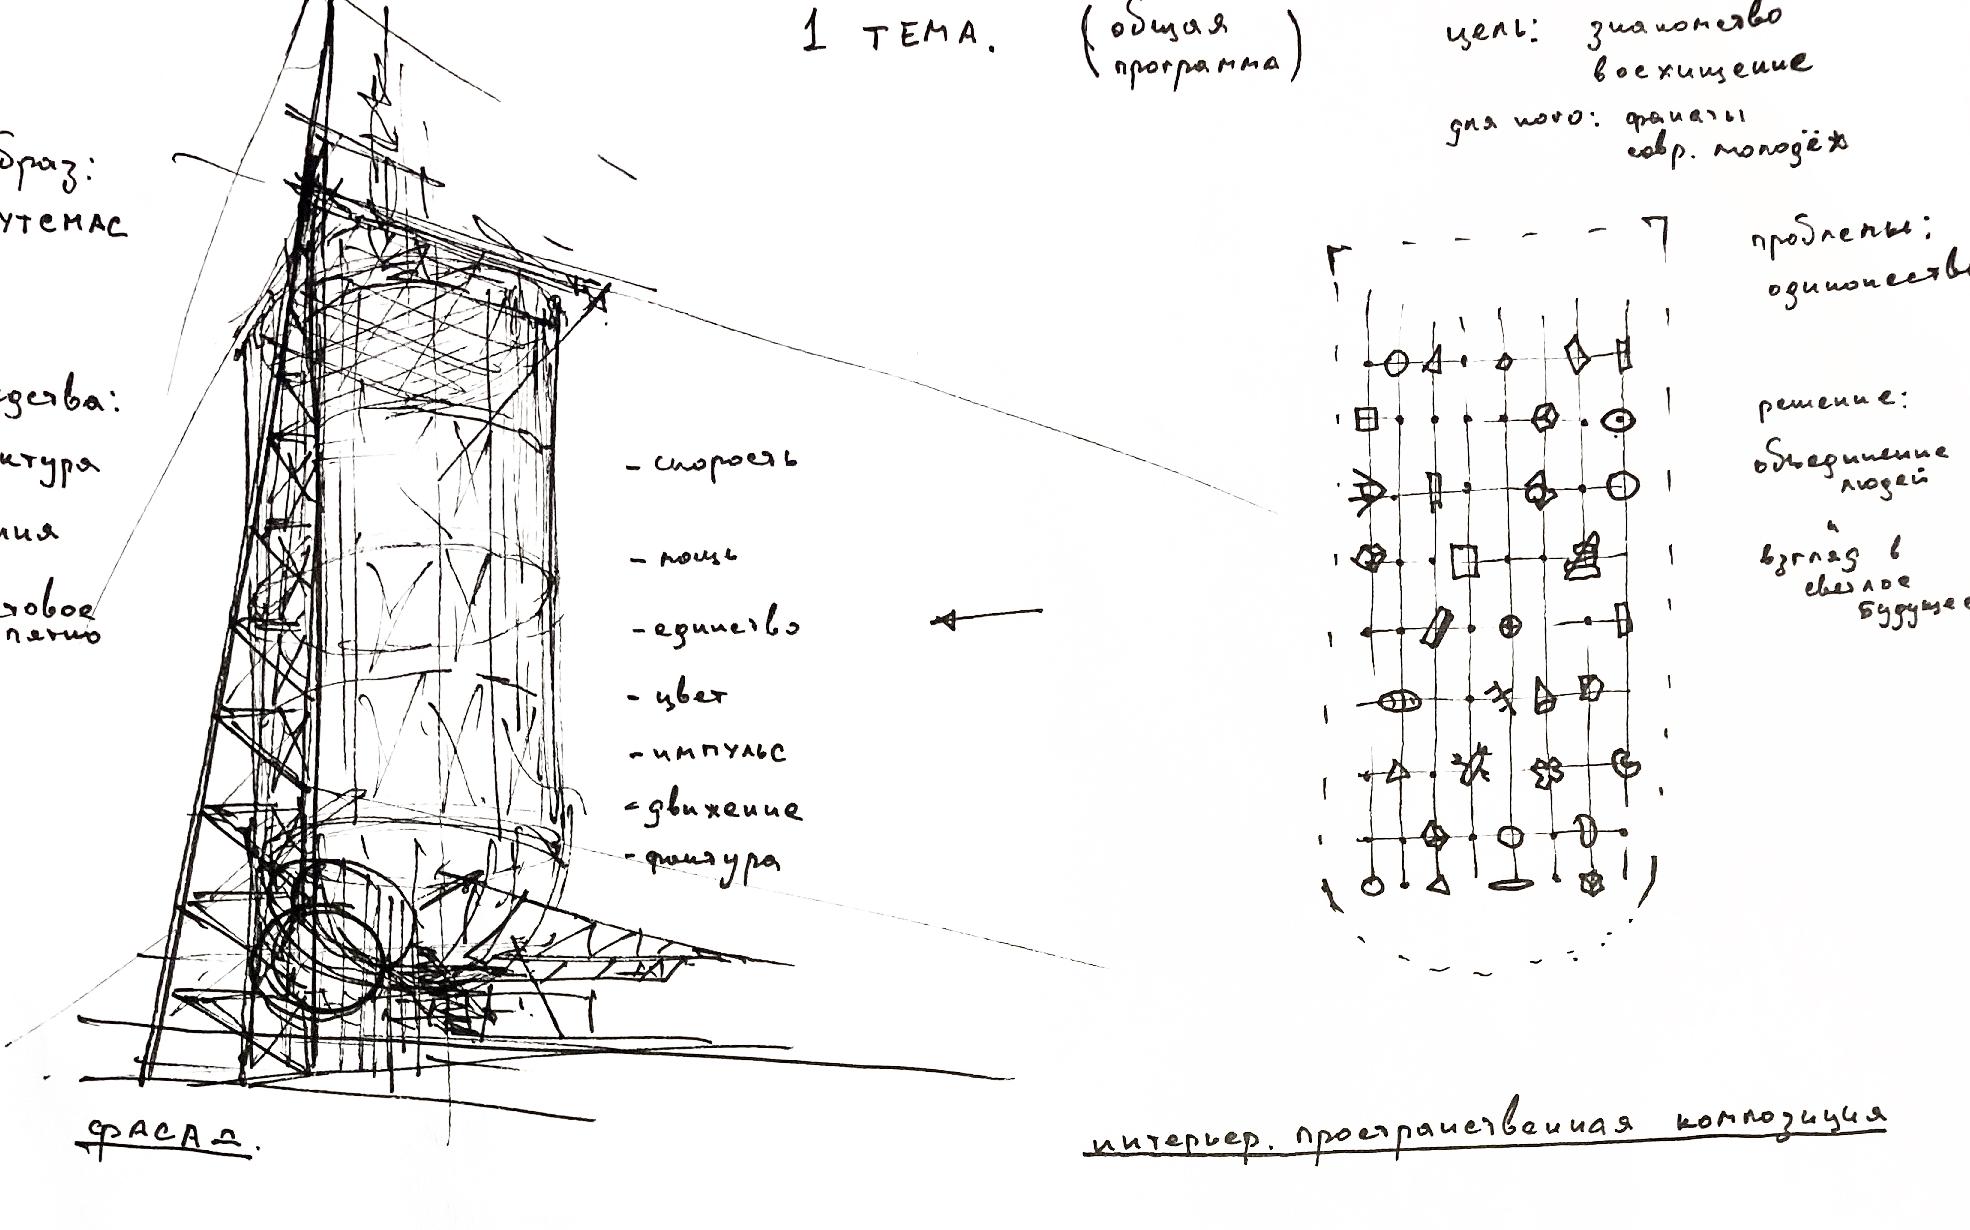 1 ТЕМА.
(общая
программа)
цель: знакомство
восхищение
для кого: фанаты
совр. молодёж
браз:
УТЕМАС
дства:
ктура
ния
товое
пятно
- скорость
- мощь
- единство
- цвет
- импульс
- движение
- фактура
проблемы:
одиночество
решение:
объединение
людей
и
взгляд в
светлое
будущее
ФАСАД.
интерьер. пространственная композиция